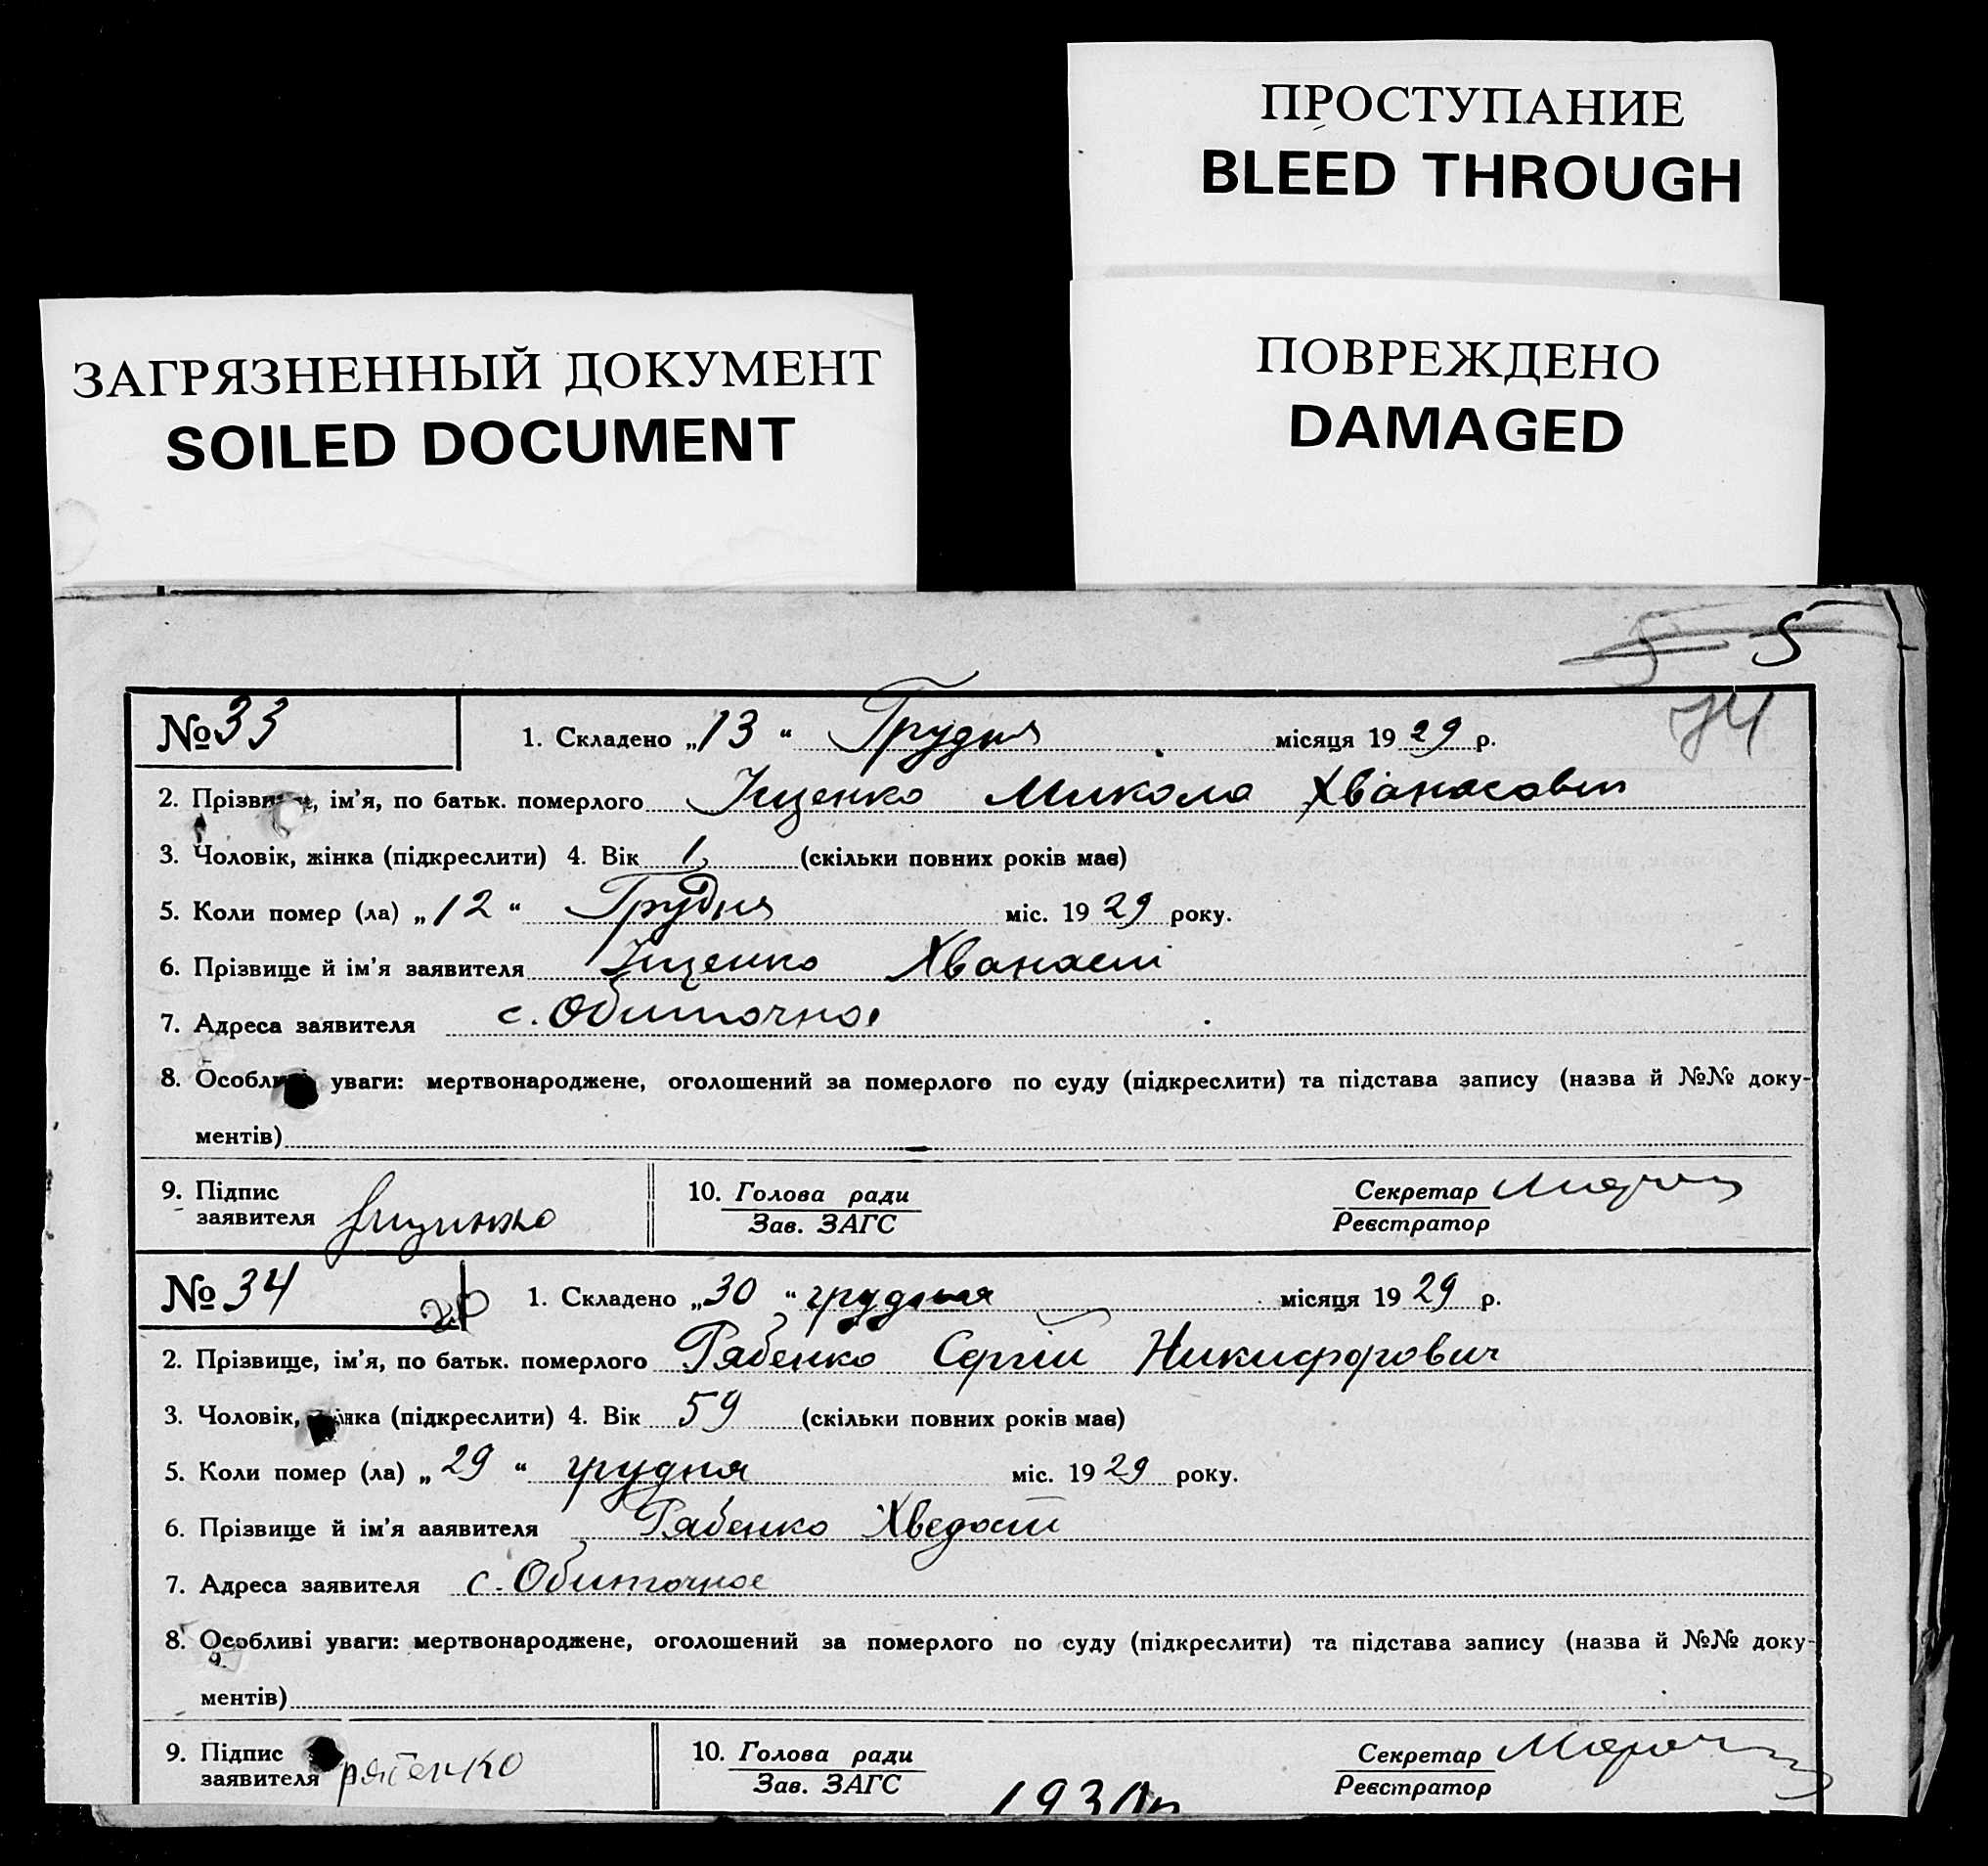 ПРОСТУПАНИЕ
BLEED THROUGH
ЗАГРЯЗНЕННЫЙ ДОКУМЕНТ
SOILED DOCUMENT
ПОВРЕЖДЕНО
DAMAGED
5 5
74
№ 33 1. Складено „13“ Грудня місяця 1929 р.
2. Прізвище, ім'я, по батьк. померлого Іщенко Микола Хванасовіт
3. Чоловік, жінка (підкреслити) 4. Вік 1 (скільки повних років має)
5. Коли помер (ла) „12“ Грудня міс. 1929 року.
6. Прізвище й ім'я заявителя Іщенко Хванасій
7. Адреса заявителя с. Обиточное
8. Особливі уваги: мертвонароджене, оголошений за померлого по суду (підкреслити) та підстава запису (назва й №№ доку-
ментів)
9. Підпис заявителя 10. Голова ради Секретар
Зав. ЗАГС Реєстратор
№ 34 1. Складено „30“ грудня місяця 1929 р.
2. Прізвище, ім'я, по батьк. померлого Рябенко Сергій Никифорович
3. Чоловік, жінка (підкреслити) 4. Вік 59 (скільки повних років має)
5. Коли помер (ла) „29“ грудня міс. 1929 року.
6. Прізвище й ім'я заявителя Рябенко Хведосій
7. Адреса заявителя с. Обиточное
8. Особливі уваги: мертвонароджене, оголошений за померлого по суду (підкреслити) та підстава запису (назва й №№ доку-
ментів)
9. Підпис заявителя рябенко 10. Голова ради Секретар
Зав. ЗАГС Реєстратор